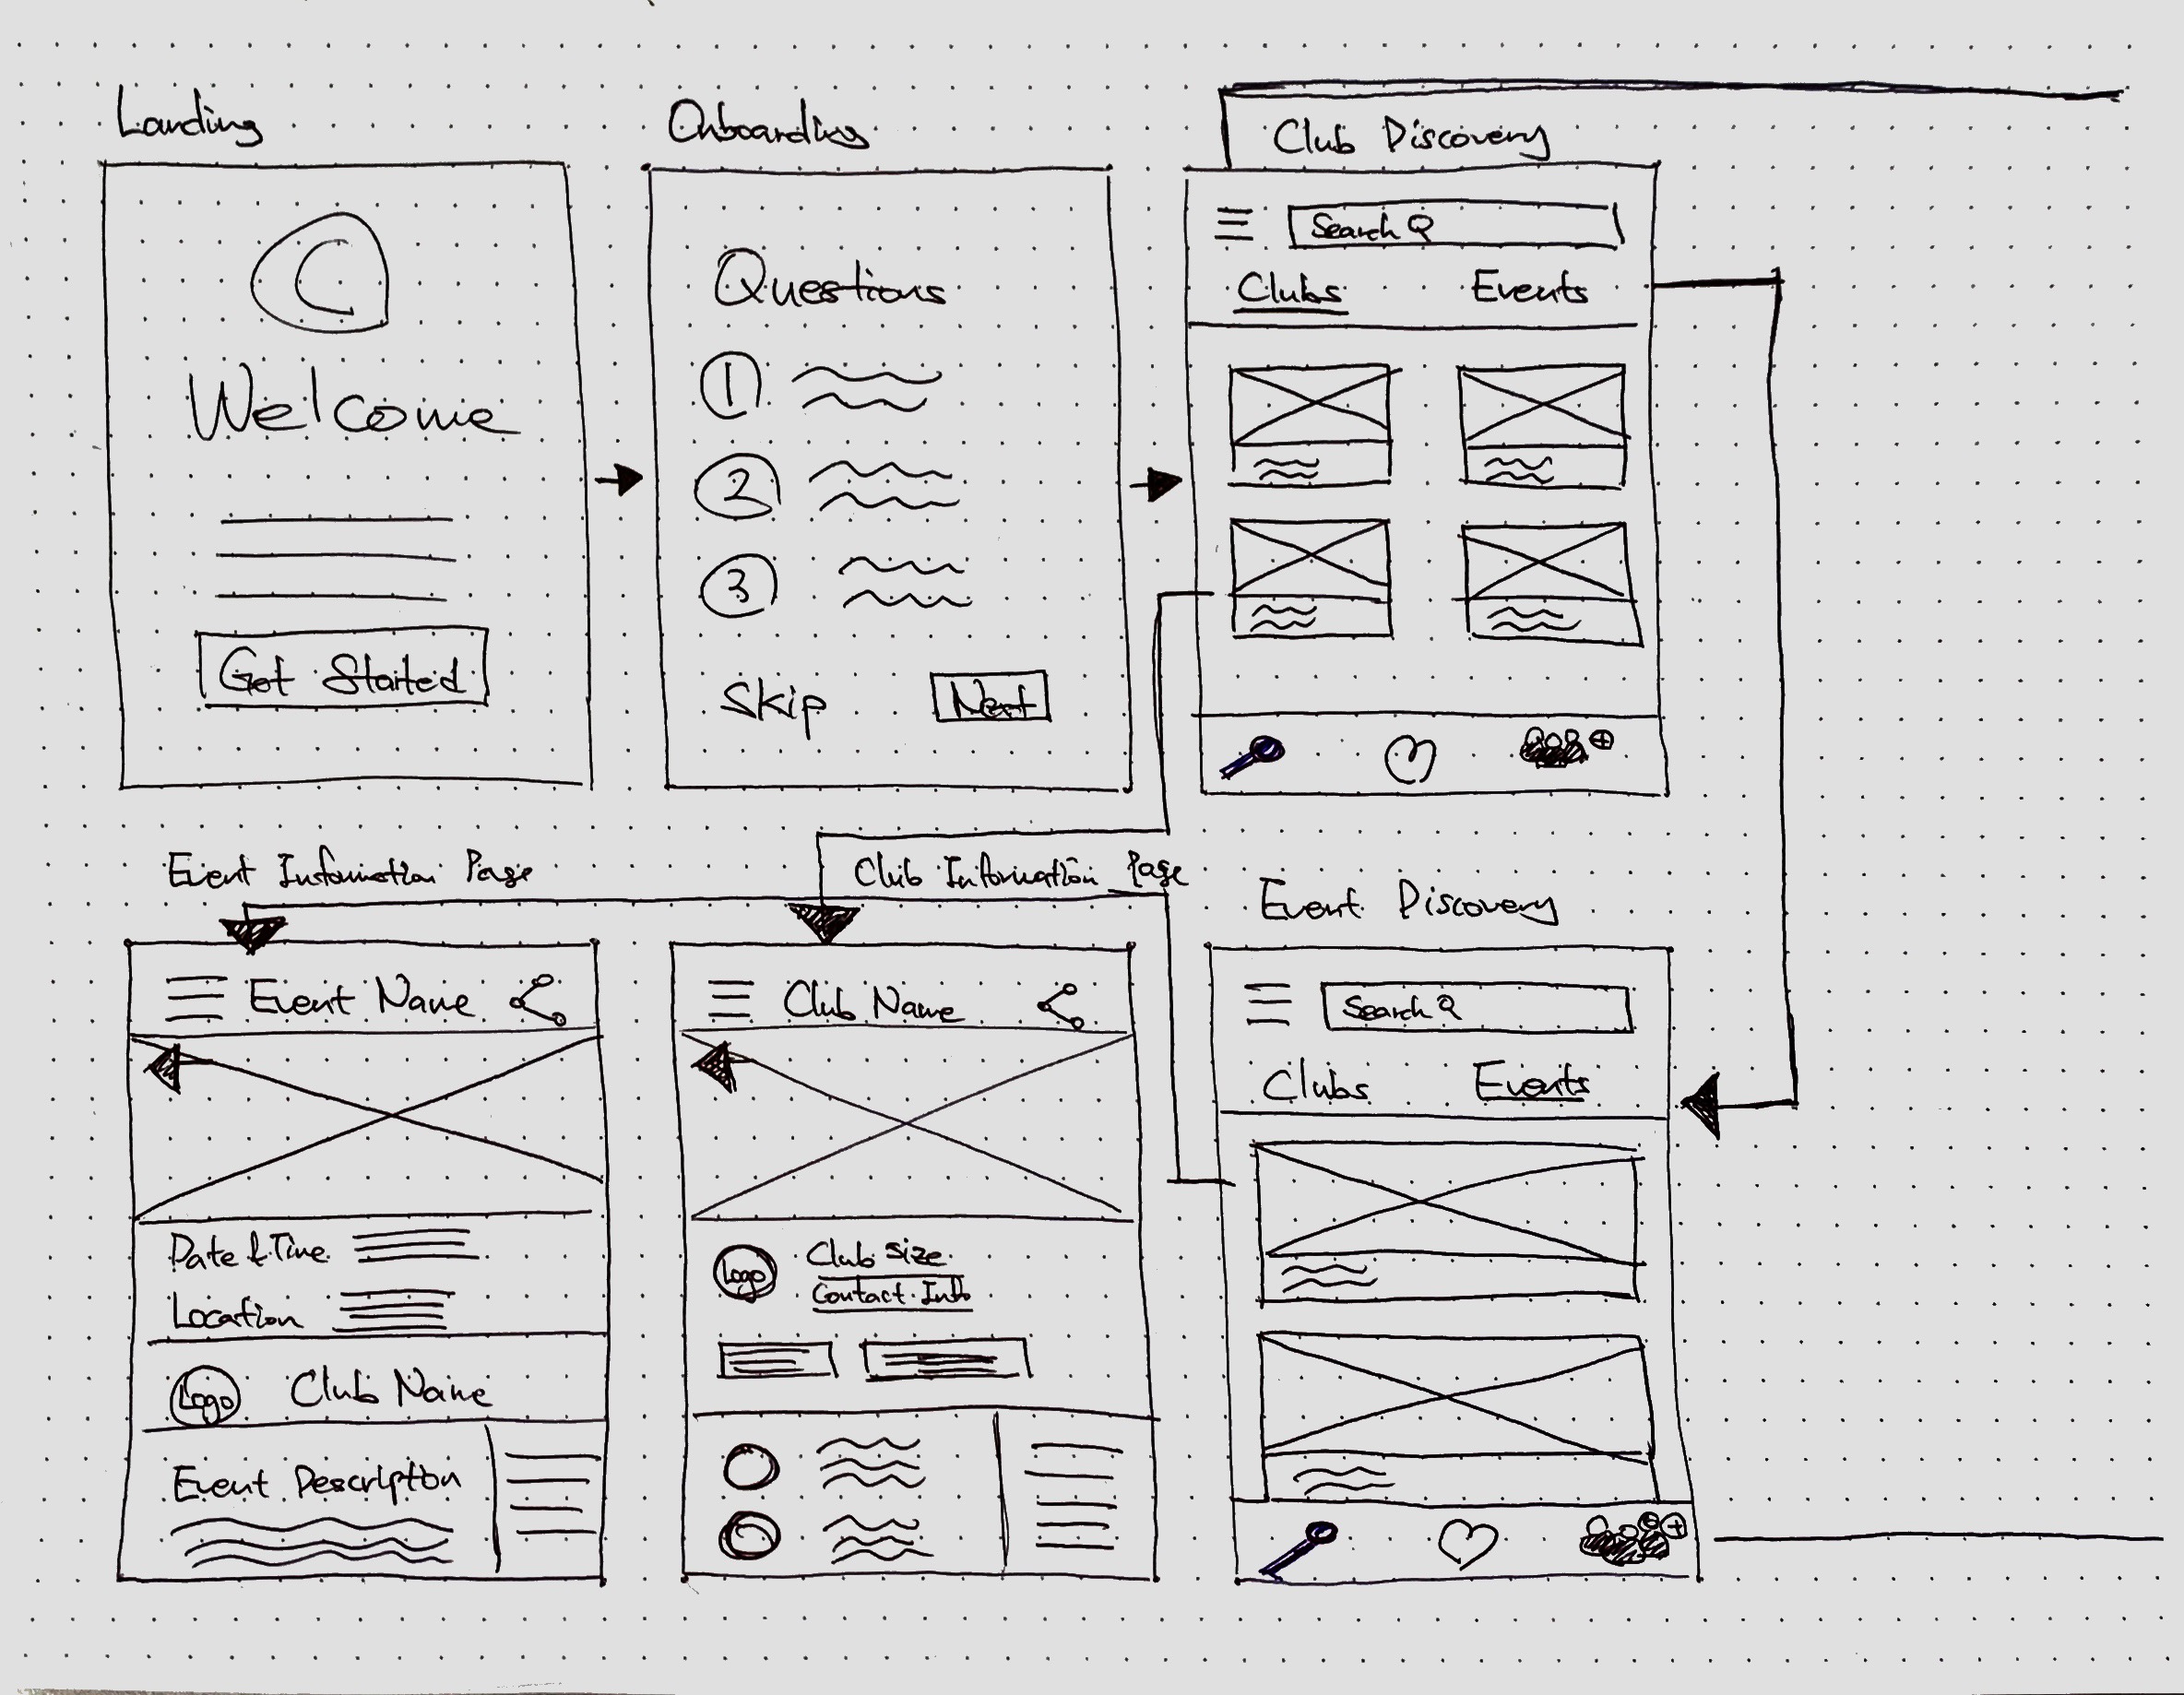 Landing
C
Welcome
Get Started
Onboarding
Questions
1
2
3
Skip
Next
Club Discovery
Search
Clubs Events
Event Information Page
Event Name
Date & Time
Location
Logo Club Name
Event Description
Club Information Page
Club Name
Logo
Club Size
Contact Info
Event Discovery
Search
Clubs Events